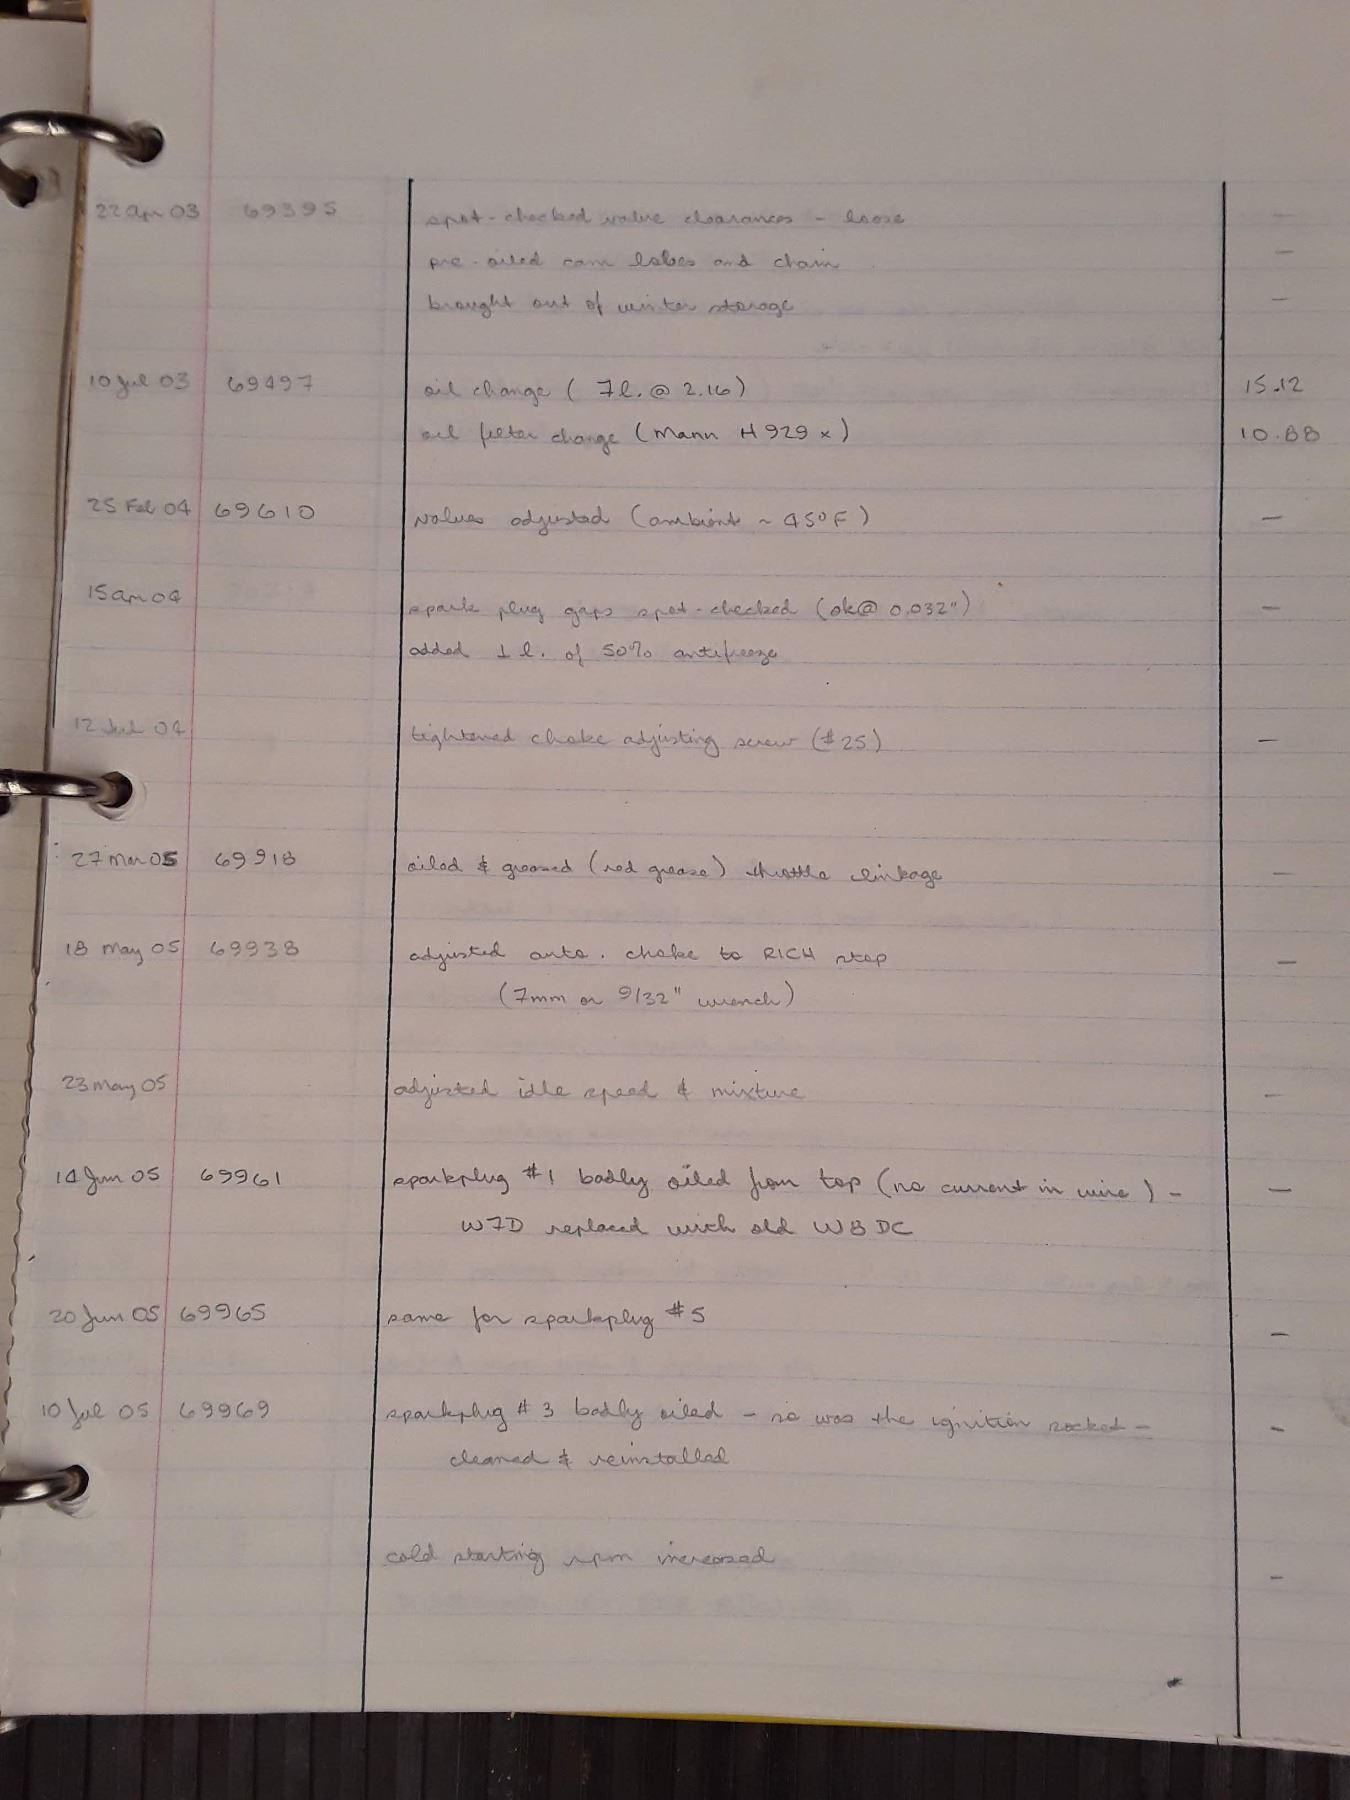 22 Apr 03 69395 spot-checked valve clearances - loose -
pre-oiled cam lobes and chain -
brought out of winter storage -
10 Jul 03 69497 oil change ( 7 l. @ 2.16) 15.12
oil filter change (Mann H 929 x) 10.88
25 Feb 04 69610 valves adjusted (ambient ~ 45°F) -
15 Apr 04 spark plug gaps spot-checked (ok @ 0.032") -
added 1 l. of 50% antifreeze
12 Jul 04 tightened choke adjusting screw (#25) -
27 Mar 05 69918 oiled & greased (red grease) throttle linkage -
18 May 05 69938 adjusted auto. choke to RICH stop -
(7mm or 9/32" wrench)
23 May 05 adjusted idle speed & mixture -
14 Jun 05 69961 sparkplug #1 badly oiled from top (no current in wire) - -
W7D replaced with old W8DC
20 Jun 05 69965 same for sparkplug #5 -
10 Jul 05 69969 sparkplug #3 badly oiled - so was the ignition socket - -
cleaned & reinstalled
cold starting rpm increased -